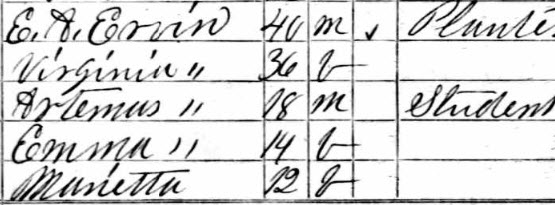 E. A. Ervin 40 m Plante
Virginia " 36 f
Artemus " 18 m Student
Emma " 14 f
Marietta 12 f